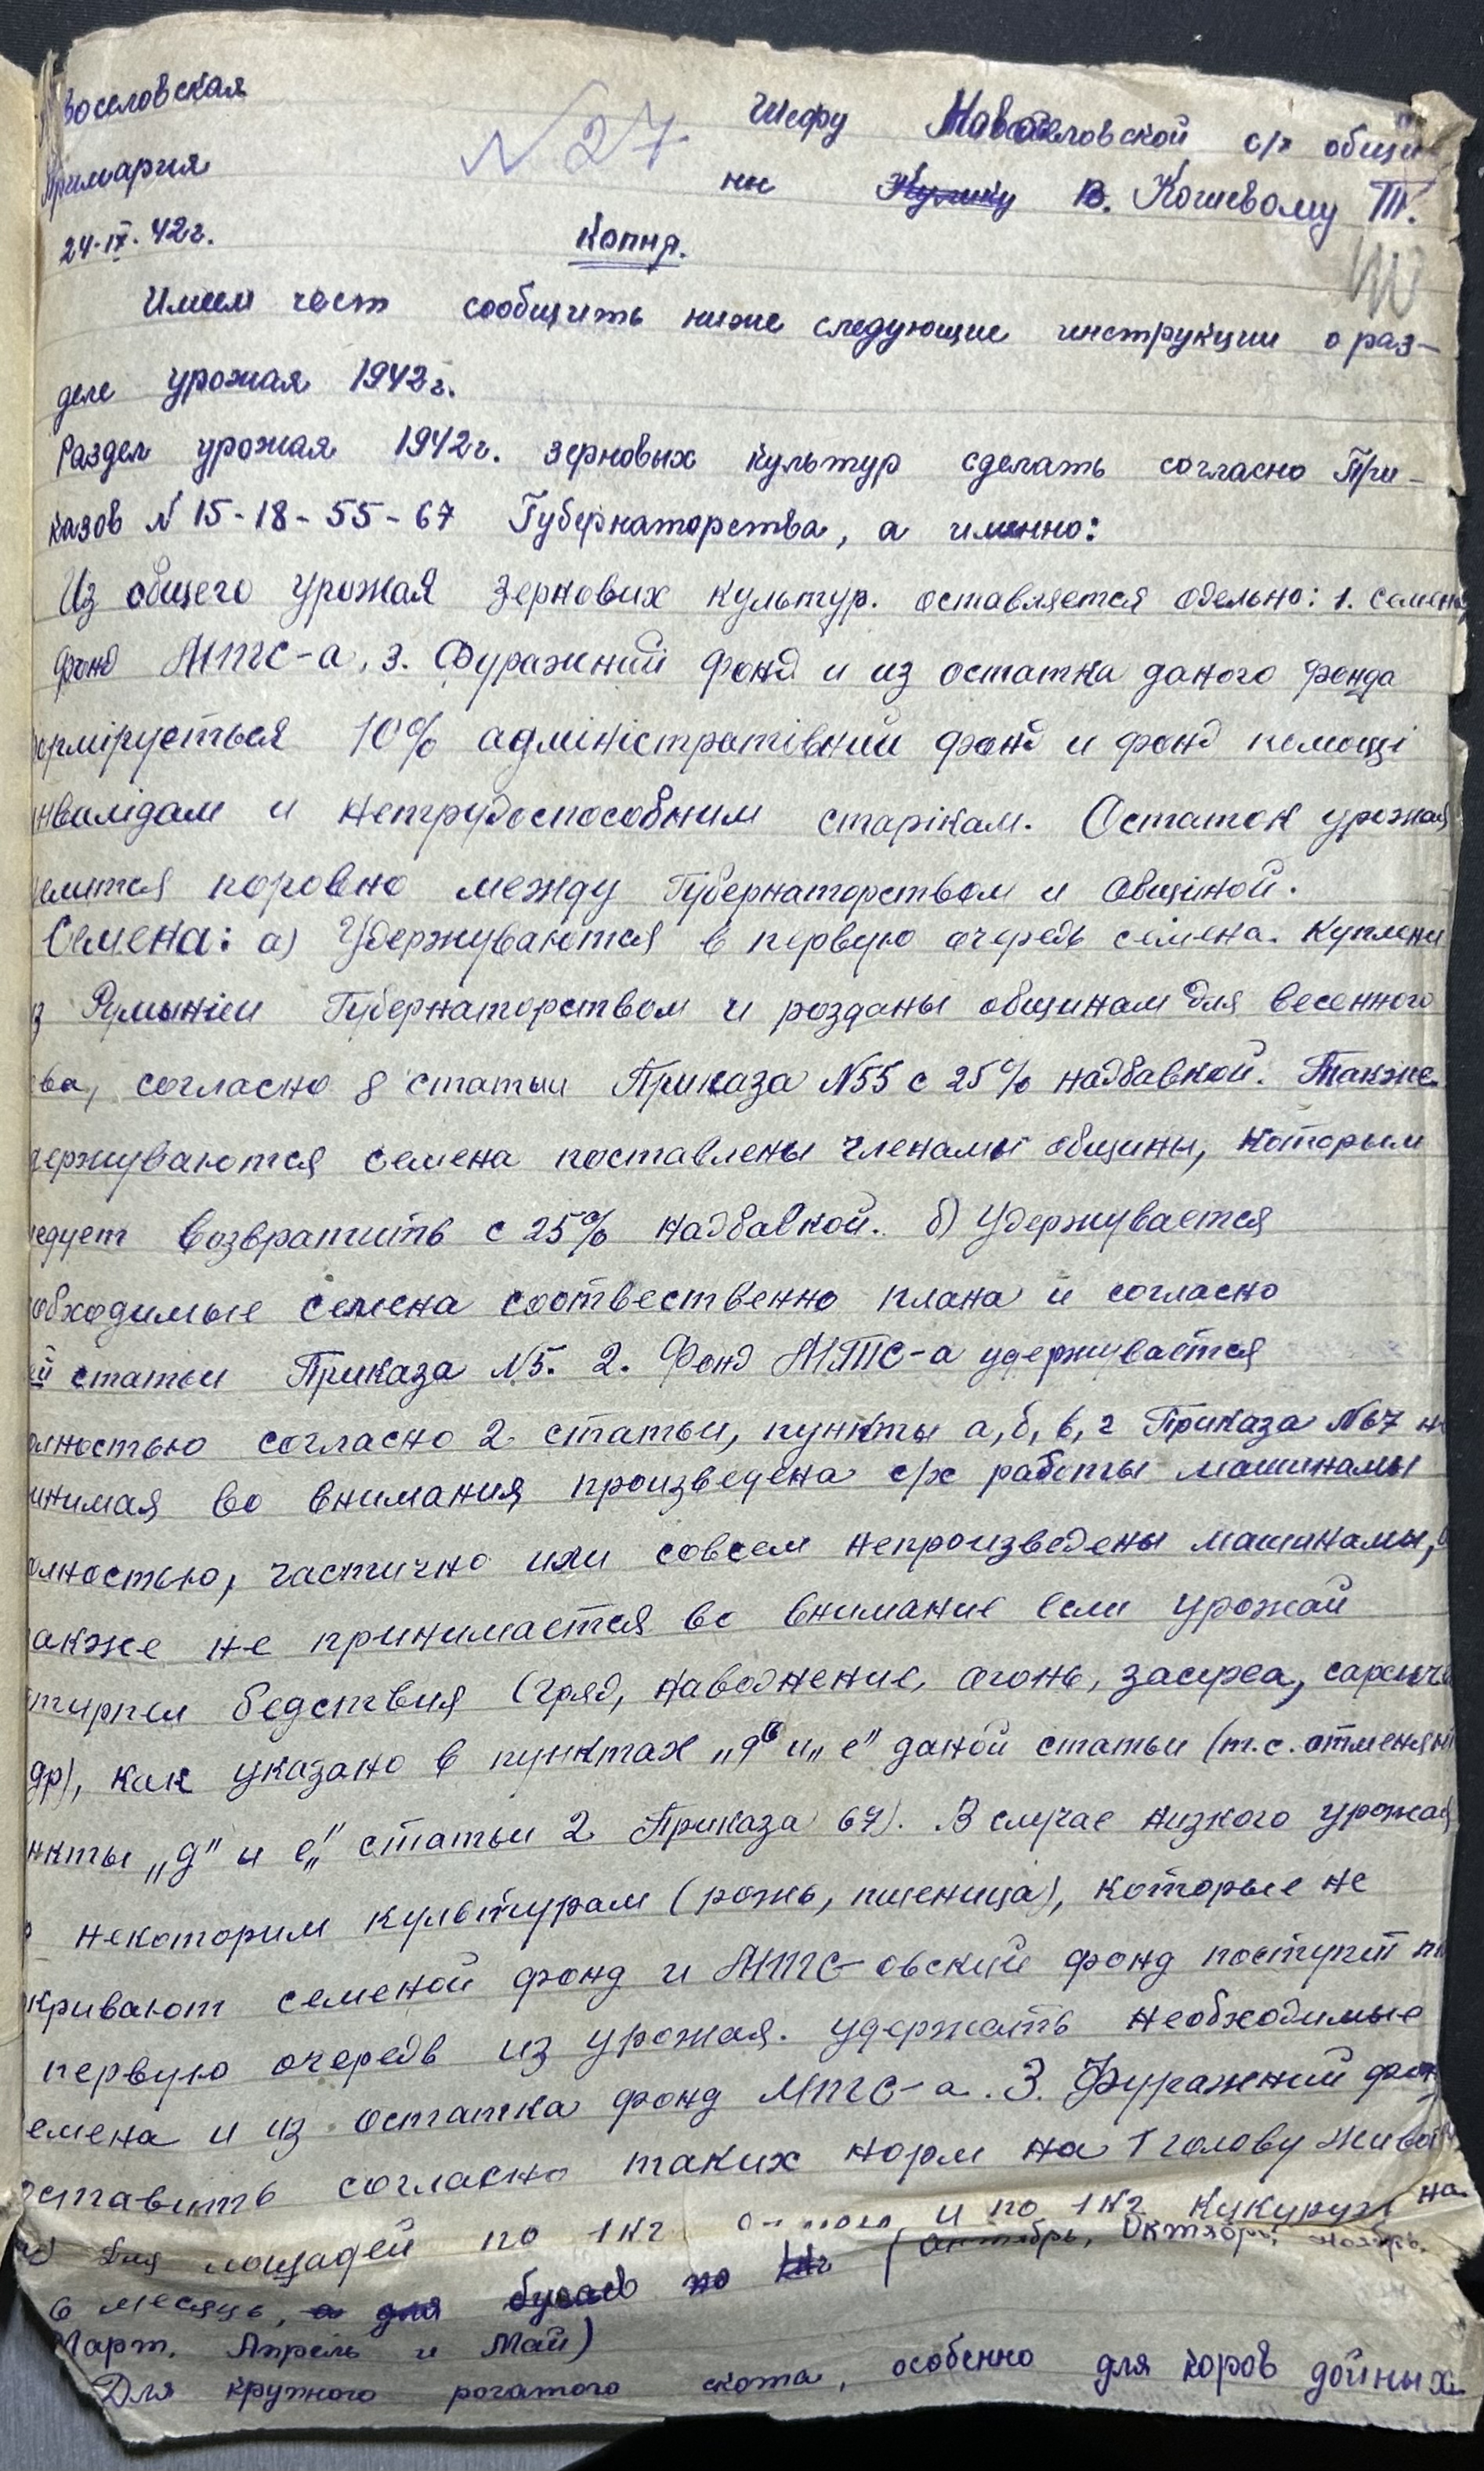 воселовская
Примария
24·IX·42г.
N27
Шефу Новоселовской с/х общи-
ни Кулику В. Кошевому Т.
Копия.
Имеем чест сообщить ниже следующие инструкции о раз-
деле урожая 1942г.
Раздел урожая 1942г. зерновых культур сделать согласно При-
казов N 15-18-55-67 Губернаторства, а именно:
Из общего урожая зернових культур. оставляется одельно: 1. семен
фонд МТС-а, 3. Фуражний фонд и из остатка даного фонда
ормірується 10% адміністратівний фонд и фонд помощі
нвалідам и нетрудоспособним старікам. Остаток урожая
елится поровно между Губернаторством и Общіной.
Семена: а) Удержуваются в первую очередь семена. Куплени
з Румыніи Губернаторством и розданы общинам для весенного
ва, согласно 8 статьи Приказа N55 с 25% надбавкой. Также
держуваются семена поставлены членамы общины, которым
ледует возвратить с 25% надбавкой. б) Удержувается
обходимые семена соотвественно плана и согласно
ей статьи Приказа N5. 2. Фонд МТС-а удержувается
олностью согласно 2 статьи, пункты а, б, в, г Приказа N67 не
инимая во внимания произведена с/х работы машинамы
олностью, частично или совсем непроизведены машинамы, а
акже не принимается во внимание если урожай
терпел бедствия (град, наводнение, огонь, засуха, саранча
др), как указано в пунктах „д" и „е" даной статьи (т.е. отменяют
нкты „д" и е„ статьи 2 Приказа 67). В случае низкого урожая
о некоторим культурам (рожь, пшеница), которые не
кривают семеной фонд и МТС-овский фонд поступит
первую очередь из урожая. удержать необходимые
емена и из остатка фонд МТС-а. 3. Фуражний фон
оставить согласно таких норм на 1 голову живот
для лошадей по 1 кг и по 1 кг кукурузи на
6 месяцв, а для бугаев по 1кг (Октябрь, Ноябрь,
Март, Апрель и Май)
Для крупного рогатого скота, особенно для коров дойных